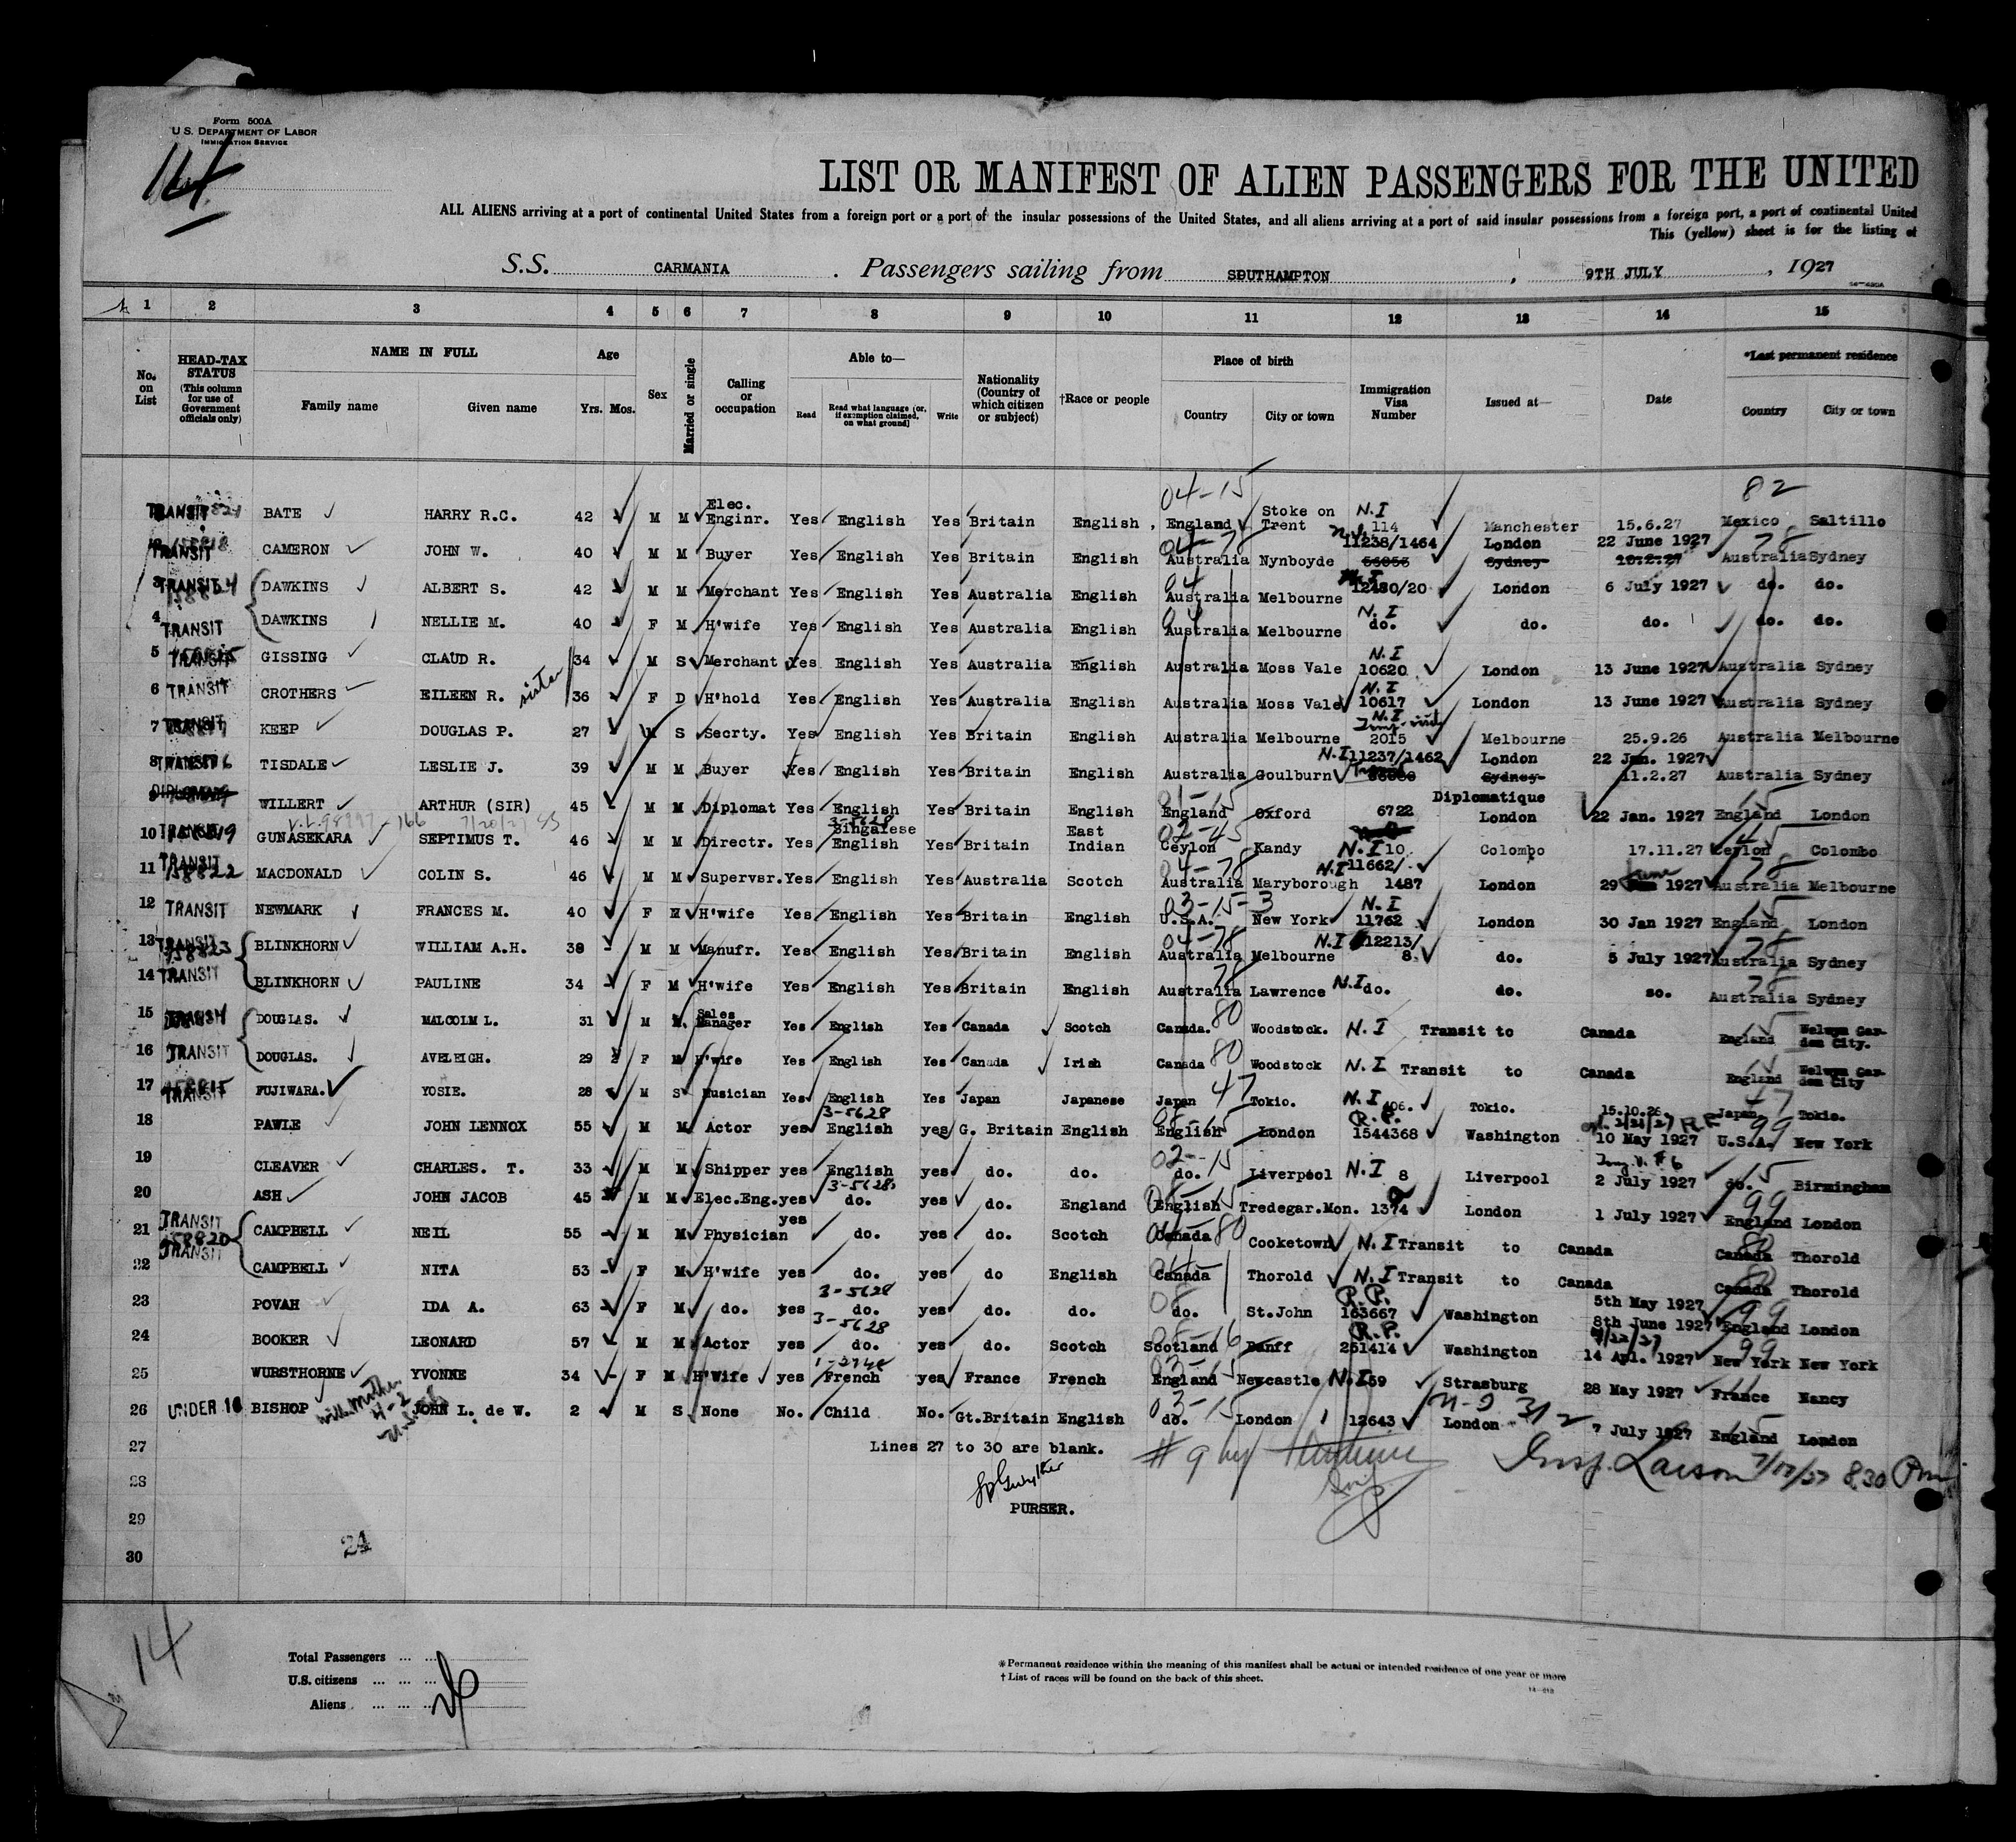 Form 500A
U.S. DEPARTMENT OF LABOR
IMMIGRATION SERVICE
14
LIST OR MANIFEST OF ALIEN PASSENGERS FOR THE UNITED
ALL ALIENS arriving at a port of continental United States from a foreign port or a port of the insular possessions of the United States, and all aliens arriving at a port of said insular possessions from a foreign port, a port of continental United
This (yellow) sheet is for the listing of
S.S. CARMANIA . Passengers sailing from SOUTHAMPTON , 9TH JULY , 1927
1 2 3 4 5 6 7 8 9 10 11 12 13 14 15
No. on List
HEAD-TAX STATUS (This column for use of Government officials only)
NAME IN FULL Family name Given name
Age Yrs. Mos.
Sex
Married or single
Calling or occupation
Able to— Read Read what language (or, if exemption claimed, on what ground) Write
Nationality (Country of which citizen or subject)
†Race or people
Place of birth Country City or town
Immigration Visa Number
Issued at—
Date
*Last permanent residence Country City or town
04-15 82
TRANSIT BATE HARRY R.C. 42 M M Elec. Enginr. Yes English Yes Britain English England Stoke on Trent N.I 114 Manchester 15.6.27 Mexico Saltillo
TRANSIT CAMERON JOHN W. 40 M M Buyer Yes English Yes Britain English 04-78 Australia Nynboyde 11238/1464 London Sydney 22 June 1927 Australia Sydney
3 TRANSIT DAWKINS ALBERT S. 42 M M Merchant Yes English Yes Australia English 04 Australia Melbourne 12480/20 London 6 July 1927 do. do.
4 TRANSIT DAWKINS NELLIE M. 40 F M H'wife Yes English Yes Australia English 04 Australia Melbourne N.I do. do. do. do. do.
5 TRANSIT GISSING CLAUD R. 34 M S Merchant Yes English Yes Australia English Australia Moss Vale N.I 10620 London 13 June 1927 Australia Sydney
6 TRANSIT CROTHERS EILEEN R. sister 36 F D H'hold Yes English Yes Australia English Australia Moss Vale N.I 10617 London 13 June 1927 Australia Sydney
7 TRANSIT KEEP DOUGLAS P. 27 M S Secrty. Yes English Yes Britain English Australia Melbourne N.I 2015 Melbourne 25.9.26 Australia Melbourne
8 TRANSIT TISDALE LESLIE J. 39 M M Buyer Yes English Yes Britain English Australia Goulburn N.I 11237/1462 London Sydney 22 Jan. 1927 11.2.27 Australia Sydney
DIPLOMAT WILLERT ARTHUR (SIR) 45 M M Diplomat Yes English Yes Britain English 01-15 England Oxford 6722 Diplomatique London 22 Jan. 1927 15 England London
10 TRANSIT GUNASEKARA SEPTIMUS T. 46 M M Directr. Yes 3-5628 Singalese English Yes Britain East Indian 02-45 Ceylon Kandy N.I 10 Colombo 17.11.27 45 Ceylon Colombo
11 TRANSIT 158822 MACDONALD COLIN S. 46 M M Supervsr. Yes English Yes Australia Scotch 04-78 Australia Maryborough N.I 11662/ 1487 London 29 June 1927 78 Australia Melbourne
12 TRANSIT NEWMARK FRANCES M. 40 F M H'wife Yes English Yes Britain English 03-15-3 U.S.A. New York N.I 11762 London 30 Jan 1927 15 England London
13 TRANSIT 158823 BLINKHORN WILLIAM A.H. 38 M M Manufr. Yes English Yes Britain English 04-78 Australia Melbourne N.I 12213/ 8 do. 5 July 1927 78 Australia Sydney
14 TRANSIT BLINKHORN PAULINE 34 F M H'wife Yes English Yes Britain English 78 Australia Lawrence N.I do. do. so. 78 Australia Sydney
15 TRANSIT DOUGLAS. MALCOLM L. 31 M M. Sales Manager Yes English Yes Canada Scotch Canada. 80 Woodstock. N.I Transit to Canada 15 England Welwyn Gar-den City.
16 TRANSIT DOUGLAS. AVELEIGH. 29 F M H'wife Yes English Yes Canada Irish Canada 80 Woodstock N.I Transit to Canada 15 England Welwyn Gar-den City
17 158815 TRANSIT FUJIWARA. YOSIE. 28 M S Musician Yes English Yes Japan Japanese Japan 47 Tokio. N.I 406. Tokio. 15.10.26 47 Japan Tokio.
18 PAWLE JOHN LENNOX 55 M M Actor yes 3-5628 English yes G. Britain English 08-15 English London R.P. 1544368 Washington 10 May 1927 99 U.S.A. New York
19 CLEAVER CHARLES. T. 33 M M Shipper yes English yes do. do. 02-15 do. Liverpool N.I 8 Liverpool 2 July 1927 15 do. Birmingham
20 ASH JOHN JACOB 45 M M Elec.Eng. yes 3-5628 do. yes do. England English Tredegar.Mon. 1374 London 1 July 1927 99 England London
21 TRANSIT 158820 CAMPBELL NEIL 55 M M Physician yes do. yes do. Scotch Canada 80 Cooketown N.I Transit to Canada 80 Canada Thorold
22 TRANSIT CAMPBELL NITA 53 F M H'wife yes do. yes do English Canada Thorold N.I Transit to Canada 80 Canada Thorold
23 POVAH IDA A. 63 F M do. yes 3-5628 do. yes do. do. 08 do. St.John R.P. 163667 Washington 5th May 1927 8th June 1927 99 England London
24 BOOKER LEONARD 57 M M Actor yes 3-5628 do. yes do. Scotch 08-16 Scotland Banff R.P. 251414 Washington 14 Apl. 1927 99 New York New York
25 WURSTHORNE YVONNE 34 F M H'Wife yes French yes France French 03-15 England Newcastle N.I 59 Strasburg 28 May 1927 France Nancy
26 UNDER 16 BISHOP JOHN L. de W. 2 M S None No. Child No. Gt.Britain English 03-15 do. London 12643 London 7 July 1927 15 England London
27 Lines 27 to 30 are blank.
28 Insp. Larson 8.30 Pm
PURSER.
29
24
30
14
Total Passengers
U.S. citizens
Aliens
*Permanent residence within the meaning of this manifest shall be actual or intended residence of one year or more
† List of races will be found on the back of this sheet.